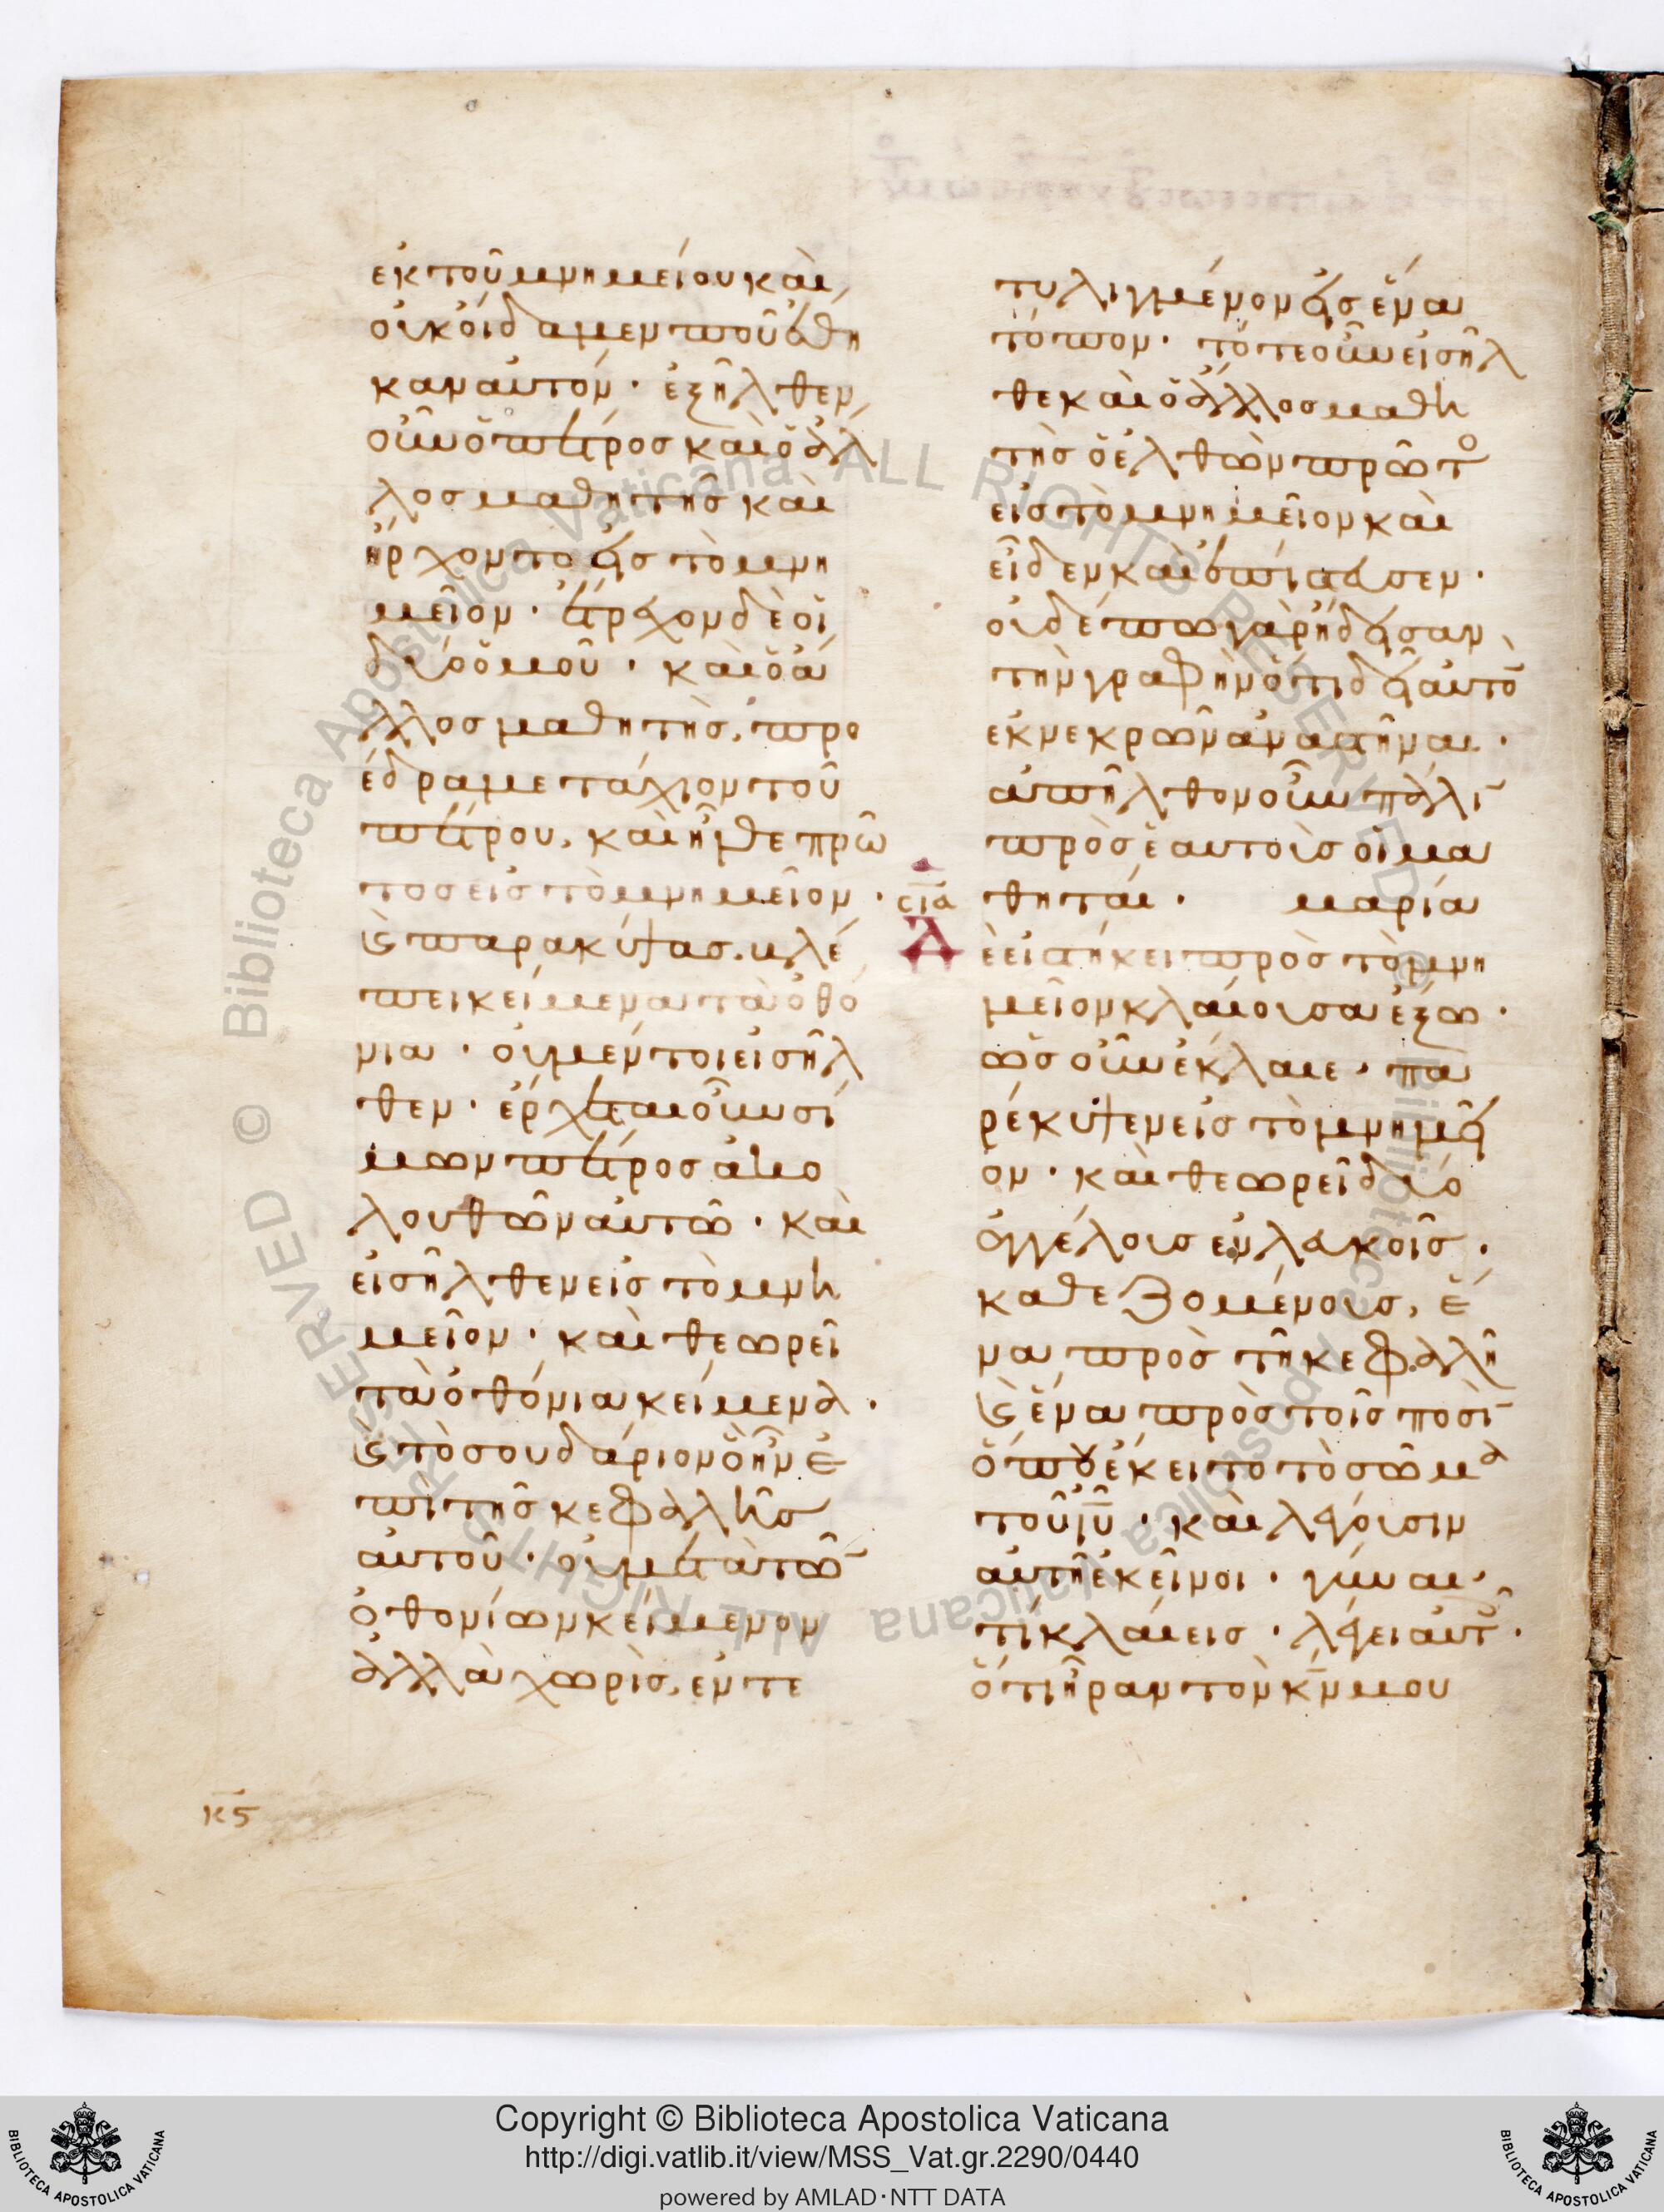 ἐκ τοῦ μνημείου καὶ
οὐκ οἴδαμεν ποῦ ἔθη
καν αὐτόν · ἐξῆλθεν
οὖν ὁ πέτρος καὶ ὁ ἄλ
λος μαθητὴς καὶ
ἤρχοντο εἰς τὸ μνη
μεῖον · ἔτρεχον δὲ οἱ
δύο ὁμοῦ · καὶ ὁ ἄ
λλος μαθητὴς, προ
έδραμε τάχιον τοῦ
πέτρου, καὶ ἦλθε πρῶ
τος εἰς τὸ μνημεῖον ·
ϗ παρακύψας. βλέ
πει κείμενα τὰ ὀθό
νια · οὐ μέντοι εἰσῆλ
θεν · ἔρχεται οὖν σί
μων πέτρος ἀκο
λουθῶν αὐτῶ · καὶ
εἰσῆλθεν εἰς τὸ μνη
μεῖον · καὶ θεωρεῖ
τὰ ὀθόνια κείμενα ·
ϗ τὸ σουδάριον ὃ ἦν ἐ
πὶ τῆς κεφαλῆς
αὐτοῦ · οὐ μετὰ τῶ̅
ὀθονίων κείμενον
ἀλλὰ χωρὶς, ἐντε
τυλιγμένον εἰς ἕνα
τόπον · τότε οὖν εἰσῆλ
θε καὶ ὁ ἄλλος μαθη
τὴς ὁ ἐλθὼν πρῶτο
εἰς τὸ μνημεῖον καὶ
εἶδεν καὶ ἐπίστευσεν ·
οὐδέπω γὰρ ᾔδεισαν
τὴν γραφὴν ὅτι δεῖ αὐτὸ̅
ἐκ νεκρῶν ἀναστῆναι ·
ἀπῆλθον οὖν πάλι̅
πρὸς ἑαυτοὺς οἱ μα
σ̅ι̅α̅ θηταί · μαρία
Δ ἑιστήκει πρὸς τὸ μνη
μεῖον κλαίουσα ἔξω ·
ὡς οὖν ἔκλαιε · πα
ρέκυψεν εἰς τὸ μνημεῖ
ον · καὶ θεωρεῖ δύο
ἀγγέλους ἐν λευκοῖς ·
καθεζομένους, ἕ
να πρὸς τῆ κεφαλῆ
ϗ ἕνα πρὸς τοῖς ποσὶ̅
ὅπου ἔκειτο τὸ σῶμα
τοῦ ι̅υ̅ · καὶ λέγουσιν
αὐτῆ ἐκεῖνοι · γύναι ·
τί κλαίεις · λέγει αὐτ ·
ὅτι ἦραν τὸν κ̅ν̅ μου
κ̅ϛ̅
Copyright © Biblioteca Apostolica Vaticana
http://digi.vatlib.it/view/MSS_Vat.gr.2290/0440
powered by AMLAD·NTT DATA
BIBLIOTECA APOSTOLICA VATICANA
BIBLIOTECA APOSTOLICA VATICANA
© Biblioteca Apostolica Vaticana ALL RIGHTS RESERVED © Biblioteca Apostolica Vaticana ALL RIGHTS RESERVED